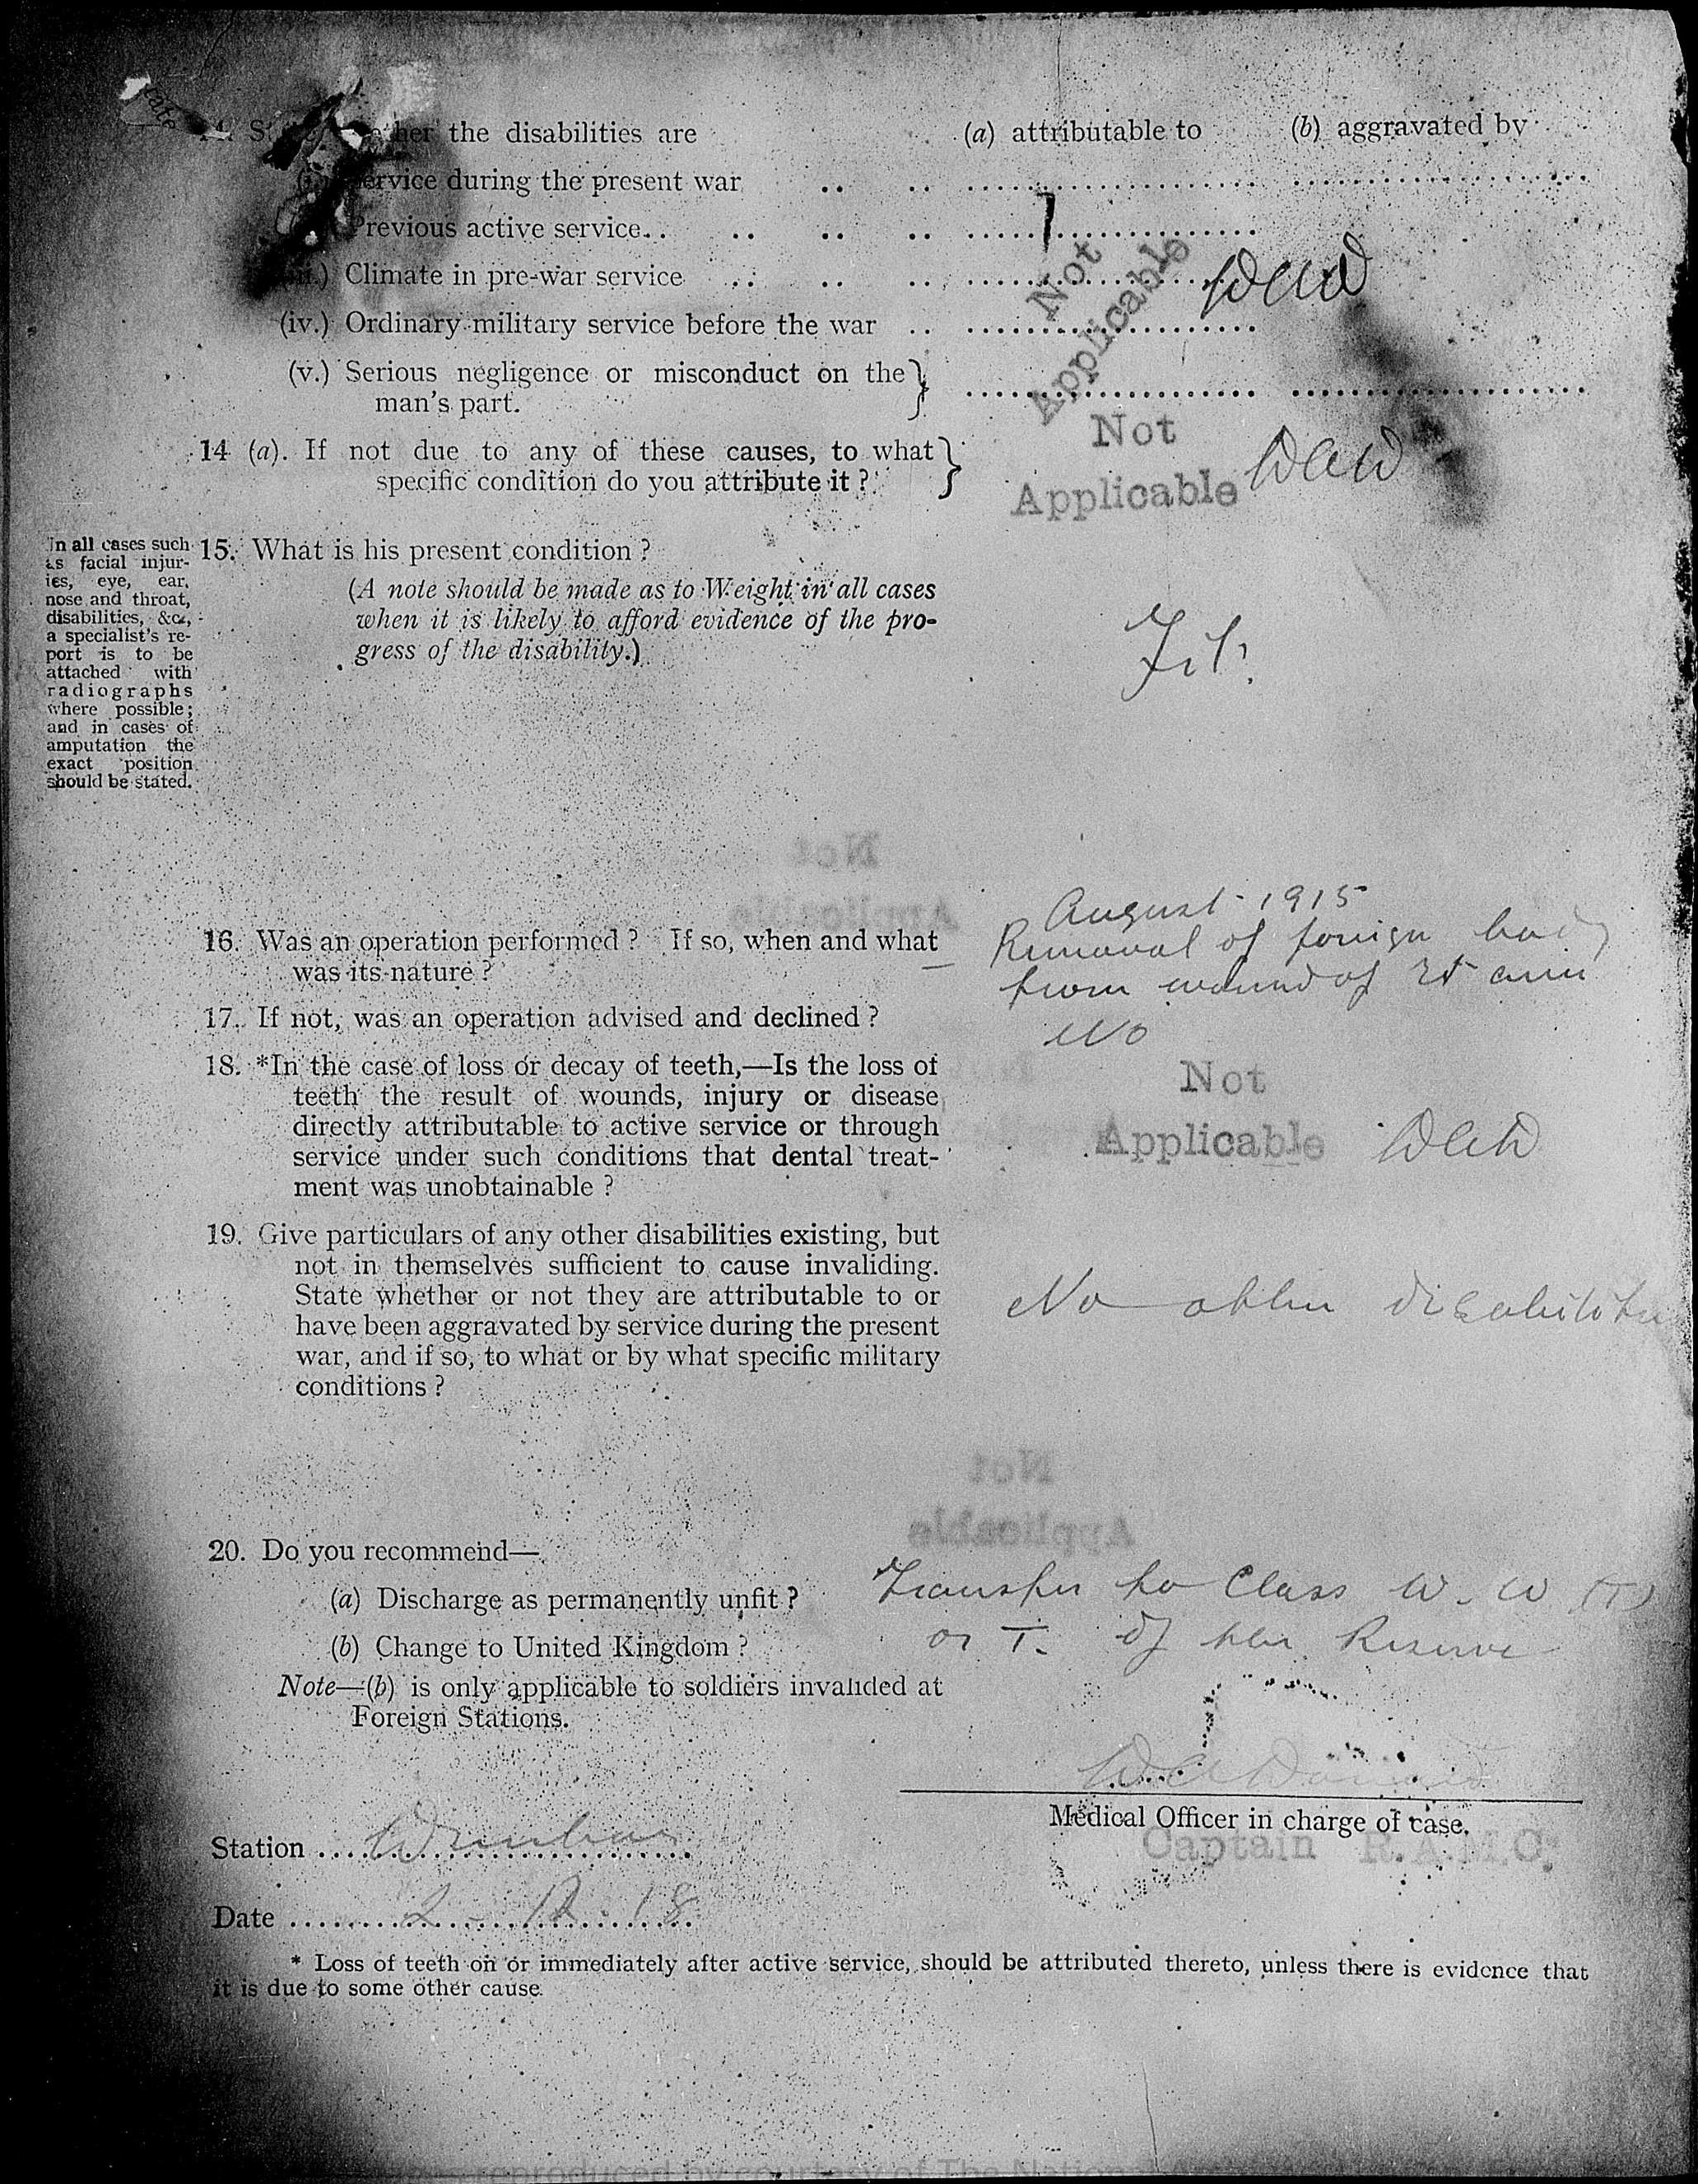 the disabilities are (a) attributable to (b) aggravated by
service during the present war
Previous active service
Climate in pre-war service
(iv.) Ordinary military service before the war
(v.) Serious negligence or misconduct on the
man's part.
Not
Applicable
14 (a). If not due to any of these causes, to what
specific condition do you attribute it ?
Not
Applicable
In all cases such
as facial injur-
ies, eye, ear,
nose and throat,
disabilities, &c.,
a specialist's re-
port is to be
attached with
radiographs
where possible;
and in cases of
amputation the
exact position
should be stated.
15. What is his present condition ?
(A note should be made as to Weight in all cases
when it is likely to afford evidence of the pro-
gress of the disability.)
Fit.
Not
Applicable
August - 1915
16. Was an operation performed ? If so, when and what
was its nature ?
Removal of foreign body
from wound of rt arm
17. If not, was an operation advised and declined ?
No
18. *In the case of loss or decay of teeth,—Is the loss of
teeth the result of wounds, injury or disease
directly attributable to active service or through
service under such conditions that dental treat-
ment was unobtainable ?
Not
Applicable
19. Give particulars of any other disabilities existing, but
not in themselves sufficient to cause invaliding.
State whether or not they are attributable to or
have been aggravated by service during the present
war, and if so, to what or by what specific military
conditions ?
No other disabilities
Not
Applicable
20. Do you recommend—
(a) Discharge as permanently unfit ?
Transfer to Class W. W (T)
(b) Change to United Kingdom ?
or T. of the Reserve
Note—(b) is only applicable to soldiers invalided at
Foreign Stations.
Medical Officer in charge of case.
Captain R.A.M.C.
Station
Date 2 - 12 - 18
* Loss of teeth on or immediately after active service, should be attributed thereto, unless there is evidence that
it is due to some other cause.